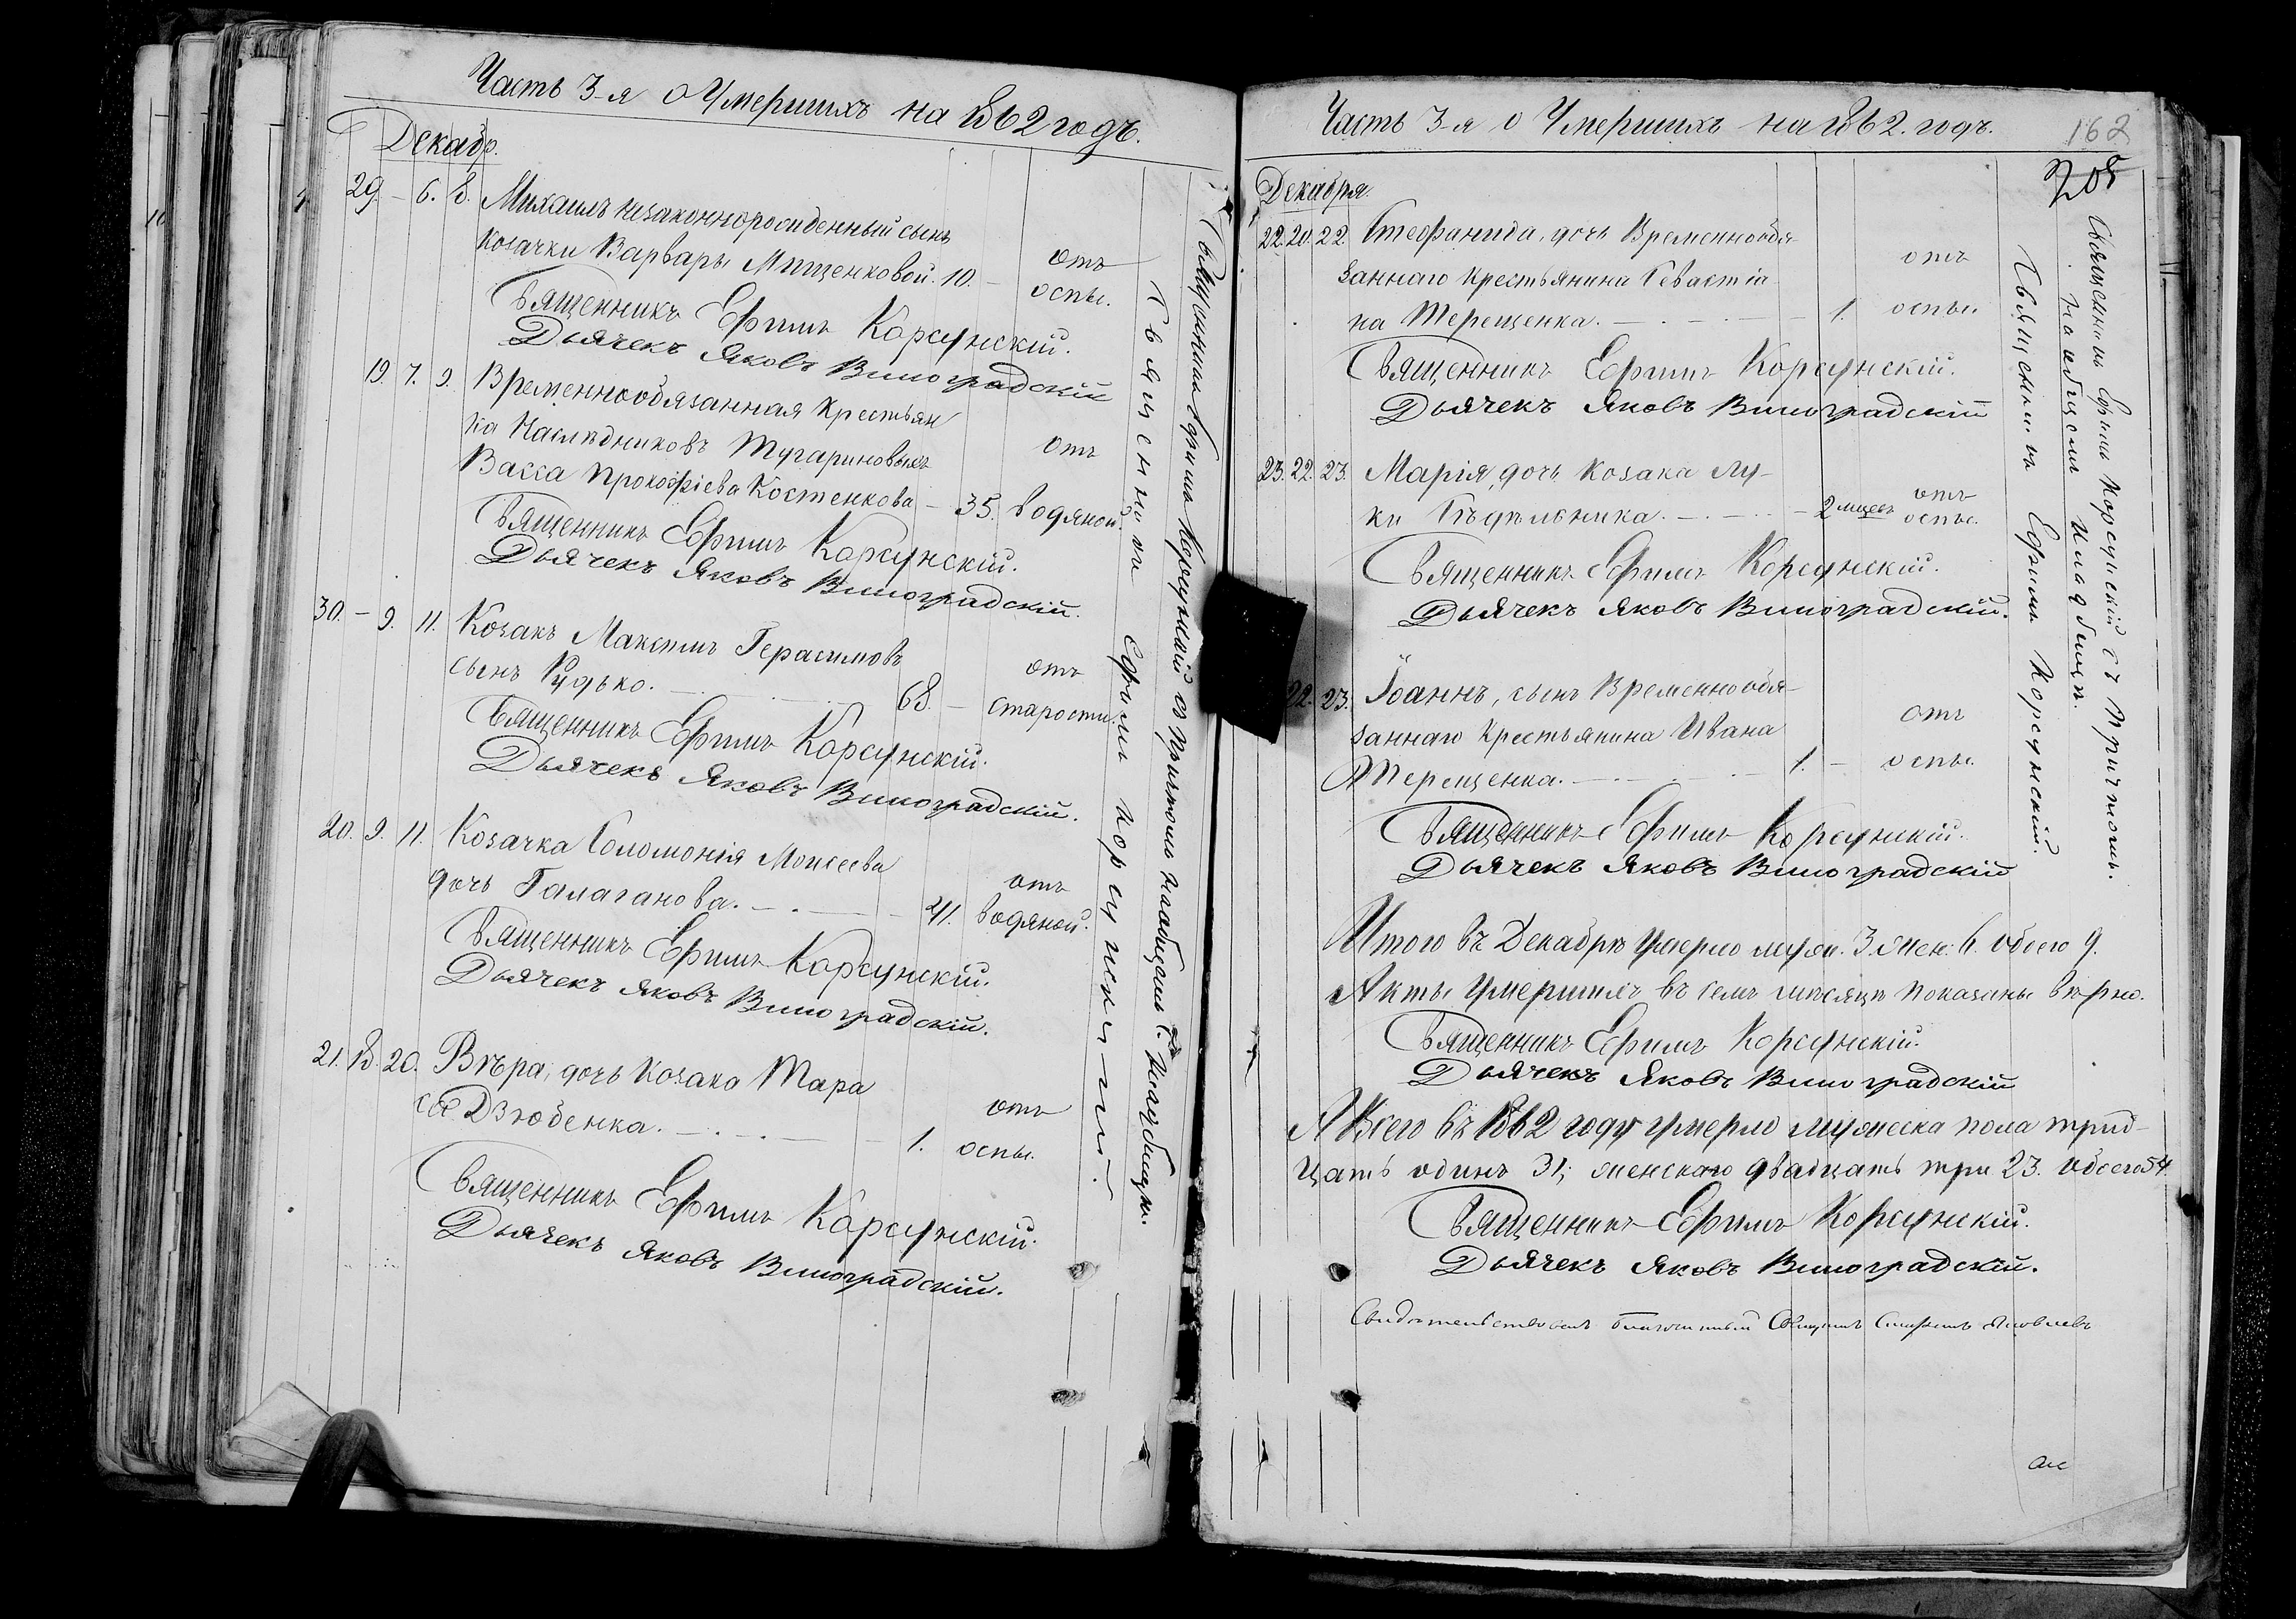 Часть 3-я О Умершихъ на 1862 годъ.
Декабр.
29. – 6. 8. Михаилъ незаконнорожденный сынъ
козачки Варвары Мищенковой. 10. – отъ оспы.
Священникъ Ефимъ Корсунскій.
Дьячекъ Яковъ Виноградскій
19. 7. 9. Временнообязанная Крестьян
ка Наслѣдниковъ Тугариновыхъ
Васса Прокофіева Костенкова – 35. отъ водяной.
Священникъ Ефимъ Корсунскій.
Дьячекъ Яковъ Виноградскій.
30. – 9. 11. Козакъ Максимъ Герасимовъ
сынъ Рудько. 68. – отъ старости.
Священникъ Ефимъ Корсунскій.
Дьячекъ Яковъ Виноградскій.
20. 9. 11. Козачка Соломонія Моисеева
дочь Галаганова. 41. отъ водяной.
Священникъ Ефимъ Корсунскій.
Дьячекъ Яковъ Виноградскій.
21. 18. 20. Вѣра, дочь Козака Тара
са Дзюбенка. 1. отъ оспы.
Священникъ Ефимъ Корсунскій.
Дьячекъ Яковъ Виноградскій.
Священникъ Ефимъ Корсунскій.
Священникъ Ефимъ Корсунскій съ Причтомъ на общемъ кладбищѣ.
Часть 3-я О Умершихъ на 1862. годъ.
162
208
Декабря.
22. 20. 22. Стефанида, дочь Временнообя-
заннаго Крестьянина Севастіа-
на Терещенка. 1. отъ оспы.
Священникъ Ефимъ Корсунскій.
Дьячекъ Яковъ Виноградскій
23. 22. 23. Марія, дочь Козака Лу-
ки Сѣдѣльника. 2 мѣсец. отъ оспы.
Священникъ Ефимъ Корсунскій.
Дьячекъ Яковъ Виноградскій.
22. 23. Іоаннъ, сынъ Временнообя-
заннаго Крестьянина Ивана
Терещенка. 1. – отъ оспы.
Священникъ Ефимъ Корсунскій.
Дьячекъ Яковъ Виноградскій
Священникъ Ефимъ Корсунскій.
Священникъ Ефимъ Корсунскій съ Причтомъ.
на общемъ кладбищѣ.
Итого въ Декабрѣ умерло муж. 3. жен. 6. обоего 9.
Акты умершихъ въ семъ мѣсяцѣ показаны вѣрно.
Священникъ Ефимъ Корсунскій.
Дьячекъ Яковъ Виноградскій
А Всего въ 1862 году умерло мужеска пола трид-
цать одинъ 31; женскаго двадцать три 23. обоего 54.
Священникъ Ефимъ Корсунскій.
Дьячекъ Яковъ Виноградскій.
Свидѣтельствовалъ благочинный Яковлевъ